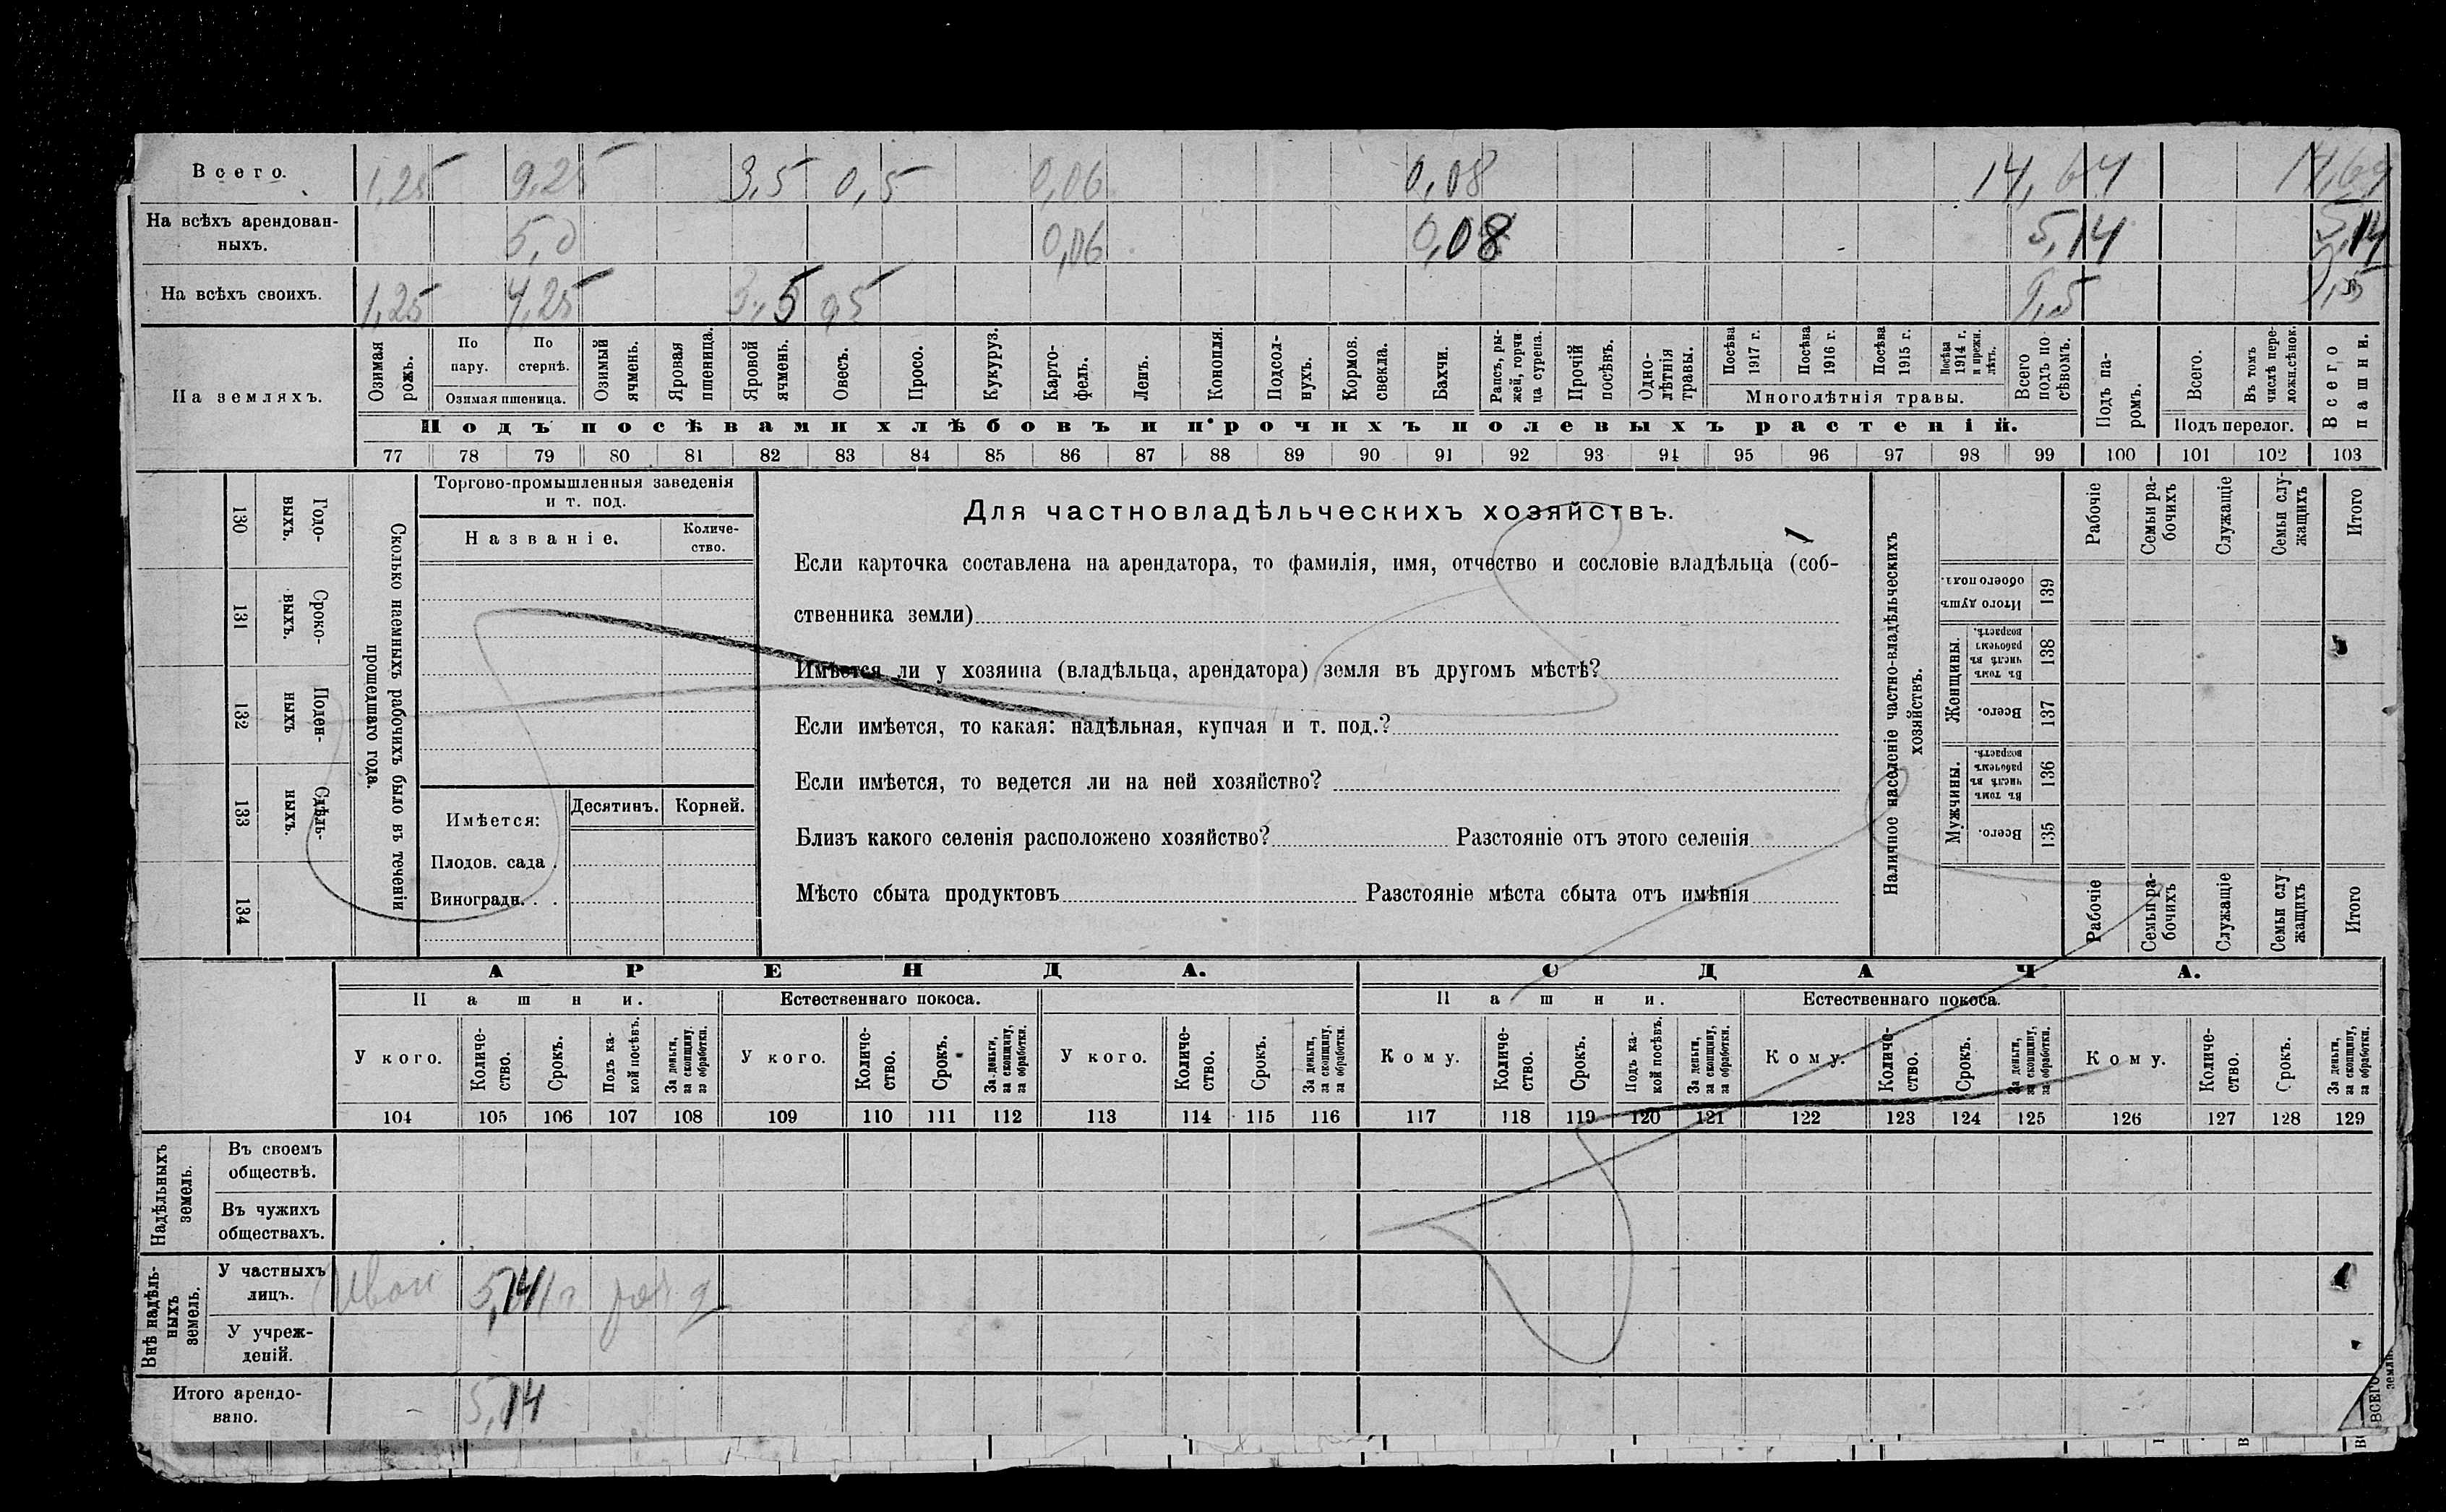 Всего. 1,25 9,25 3,5 0,5 0,06 0,08 14,64 14,64
На всѣхъ арендован-
ныхъ. 5,0 0,06 0,08 5,14 5,14
На всѣхъ своихъ. 1,25 4,25 3,5 0,5 9,5 9,5
На земляхъ.
Озимая рожь.
По пару.
По стернѣ.
Озимая пшеница.
Озимый ячмень.
Яровая пшеница.
Яровой ячмень.
Овесъ.
Просо.
Кукуруз.
Карто-
фель.
Ленъ.
Конопля.
Подсол-
нухъ.
Кормов. свекла.
Бахчи.
Рапсъ, ры-
жей, горчи
ца сурепа.
Прочій посѣвъ.
Одно-
лѣтнія травы.
Посѣва 1917 г.
Посѣва 1916 г.
Посѣва 1915 г.
Посѣва 1914 г. и прежн. лѣтъ.
Многолѣтнія травы.
Всего подъ по-
сѣвомъ.
Подъ па-
ромъ.
Всего.
Въ томъ числѣ пере-
ложн.сѣнок.
Подъ перелог.
Всего пашни.
Подъ посѣвами хлѣбовъ и прочихъ полевыхъ растеній.
77 78 79 80 81 82 83 84 85 86 87 88 89 90 91 92 93 94 95 96 97 98 99 100 101 102 103
130 Годо-
выхъ.
131 Сроко-
выхъ.
132 Поден-
ныхъ
133 Сдѣль-
ныхъ.
134
Сколько наемныхъ рабочихъ было въ теченіи
прошедшаго года.
Торгово-промышленныя заведенія
и т. под.
Названіе.
Количе-
ство.
Имѣется:
Десятинъ. Корней.
Плодов. сада .
Виноградн. . .
Для частновладѣльческихъ хозяйствъ.
Если карточка составлена на арендатора, то фамилія, имя, отчество и сословіе владѣльца (соб-
ственника земли)
Имѣется ли у хозяина (владѣльца, арендатора) земля въ другомъ мѣстѣ?
Если имѣется, то какая: надѣльная, купчая и т. под.?
Если имѣется, то ведется ли на ней хозяйство?
Близъ какого селенія расположено хозяйство? Разстояніе отъ этого селенія
Мѣсто сбыта продуктовъ Разстояніе мѣста сбыта отъ имѣнія
Наличное населеніе частно-владѣльческихъ
хозяйствъ.
Рабочіе
Семьи ра-
бочихъ
Служащіе
Семьи слу-
жащихъ
Итого
Итого душъ обоего пола. 139
Женщины.
Въ томъ числѣ въ рабочемъ возрастѣ. 138
Всего. 137
Мужчины.
Въ томъ числѣ въ рабочемъ возрастѣ. 136
Всего. 135
Рабочіе
Семьи ра-
бочихъ
Служащіе
Семьи слу
жащихъ
Итого
АРЕНДА. ОДАЧА.
Пашни. Естественнаго покоса. Пашни. Естественнаго покоса.
У кого.
Количе-
ство.
Срокъ.
Подъ ка-
кой посѣвъ.
За деньги,
за скопщину,
за обработки.
У кого.
Количе-
ство.
Срокъ.
За деньги,
за скопщину,
за обработки.
У кого.
Количе-
ство.
Срокъ.
За деньги,
за скопщину,
за обработки.
Кому.
Количе-
ство.
Срокъ.
Подъ ка-
кой посѣвъ.
За деньги,
за скопщину,
за обработки.
Кому.
Количе-
ство.
Срокъ.
За деньги,
за скопщину,
за обработки.
Кому.
Количе-
ство.
Срокъ.
За деньги,
за скопщину,
за обработки.
104 105 106 107 108 109 110 111 112 113 114 115 116 117 118 119 120 121 122 123 124 125 126 127 128 129
Надѣльныхъ
земель.
Въ своемъ
обществѣ.
Въ чужихъ
обществахъ.
Внѣ надѣль-
ныхъ
земель.
У частныхъ
лицъ. Иван 5,14
У учреж-
деній.
Итого арендо-
вано. 5,14
ВСЕГО
земли